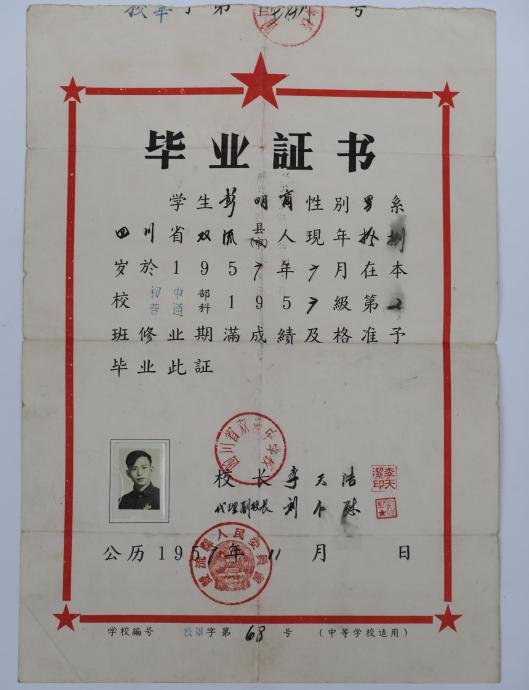 毕业証书
学生彭明商性別男系
四川省双流县(市)人現年拾捌
岁於1957年7月在本
校初中普通部科1957級第2
班修业期滿成績及格准予
毕业此証
校长李天浩
代理副校长刘
公历1957年11月 日
学校編号 毕字第68号 (中等学校适用)